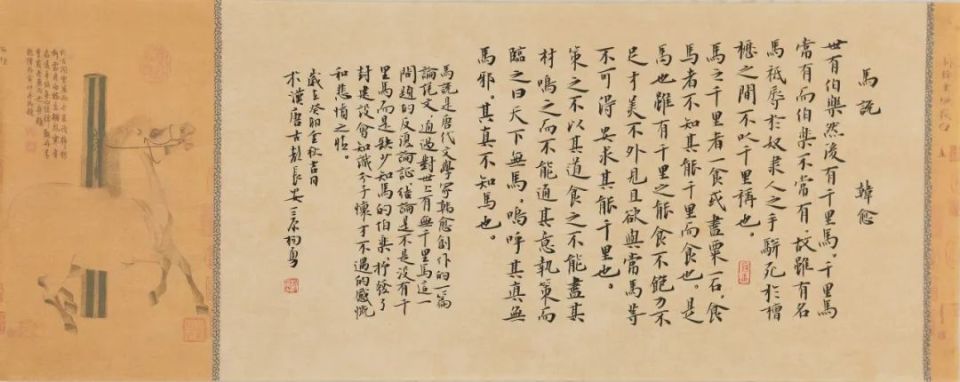 馬說 韓愈
世有伯樂然後有千里馬。千里馬
常有而伯樂不常有。故雖有名
馬祇辱於奴隸人之手駢死於槽
櫪之間不以千里稱也。
馬之千里者一食或盡粟一石。食
馬者不知其能千里而食也。是
馬也雖有千里之能食不飽力不
足才美不外見且欲與常馬等
不可得安求其能千里也。
策之不以其道食之不能盡其
材鳴之而不能通其意執策而
臨之曰天下無馬。嗚呼其真無
馬邪。其真不知馬也。
馬說是唐代文學家韓愈創作的一篇
論說文。通過對世上有無千里馬這一
問題的反復論証結論是不是沒有千
里馬而是缺少知馬的伯樂。抒發了
封建設會知識分子懷才不遇的感慨
和悲憤之情。
歲在癸卯金秋吉日
於漢唐古都長安三原柏勇